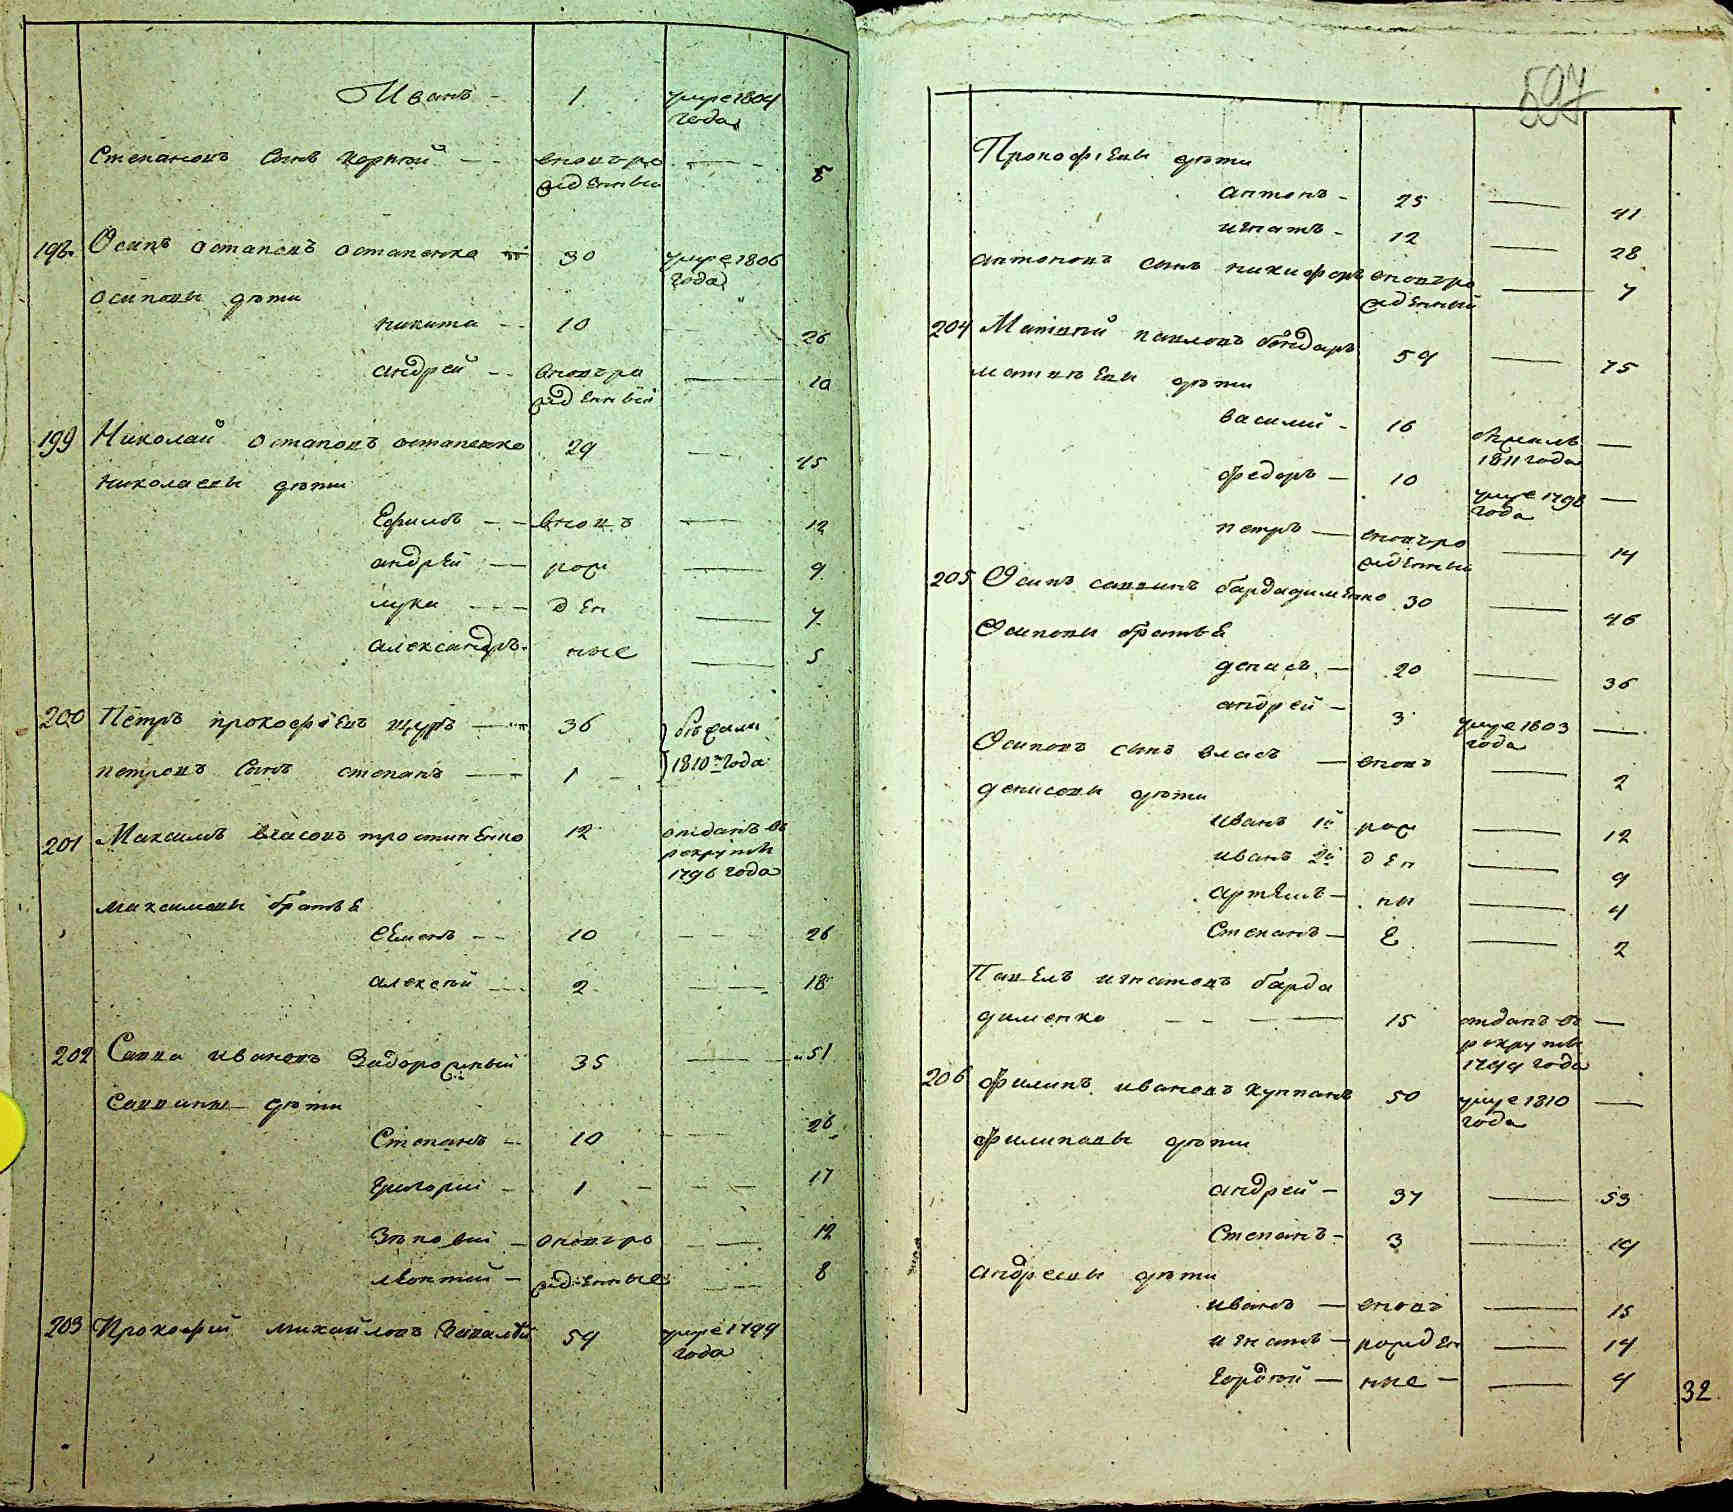 Иванъ - 1 умре 1804
года
Степановъ сынъ Корней — вновъро — 5
жденный
198 Осипъ Остаповъ Остапенко — 30 умре 1806
года
Осиповы дѣти
Никита - 10 — 26
андрей - вновъро — 10
жденный
199 Николай Остаповъ Остапенко 29 — 45
Николаевы дѣти
Ефимъ - вновъ — 12
андрей — рож — 9
лука — ден — 7
александръ - ные — 5
200 Петръ прокофьевъ щуръ — 36 бѣжали
петровъ сынъ степанъ — 1 - 1810го года
201 Максимъ власовъ тростиненко 12 отданъ въ
рекруты
1796 года
максимовы братья
семенъ - 10 — 26
алексѣй — 2 — 18
202 Савва ивановъ Задорожный 35 — 51
Саввины дѣти
Степанъ - 10 — 26
григорий - 1 - — 17
Зѣновий - вновъро — 12
леонтий - жденные — 8
203 Прокофий михайловъ 59 умре 1799
года
597
Прокофьевы дѣти
антонъ - 25 — 41
игнатъ - 12 — 28
антоновъ сынъ никифоръ вновъро — 7
жденный
204 Матвѣй павловъ бондаръ 59 — 75
матвѣевы дѣти
василий - 16 —
1811 года
федоръ — 10 умре 1798 —
года
петръ — вновъро — 14
жденный
205 Осипъ саввинъ бардадименко 30 — 46
Осиповы братья
денисъ — 20 — 36
андрей - 3 умре 1803 —
года
Осиповъ сынъ власъ — вновъ — 2
денисовы дѣти
иванъ 1й рож — 12
иванъ 2й ден — 9
артемъ — ны — 4
Степанъ — е — 2
Павелъ игнатовъ барда
дименко — 15 отданъ въ —
рекруты
1799 года
206 Филипъ ивановъ куппанъ 50 умре 1810 —
года
Филиповы дѣти
андрей - 37 — 53
Степанъ - 3 — 19
андреевы дѣти
иванъ — вновъ — 15
игнатъ — рожден — 14
гордѣй — ные - — 4
32